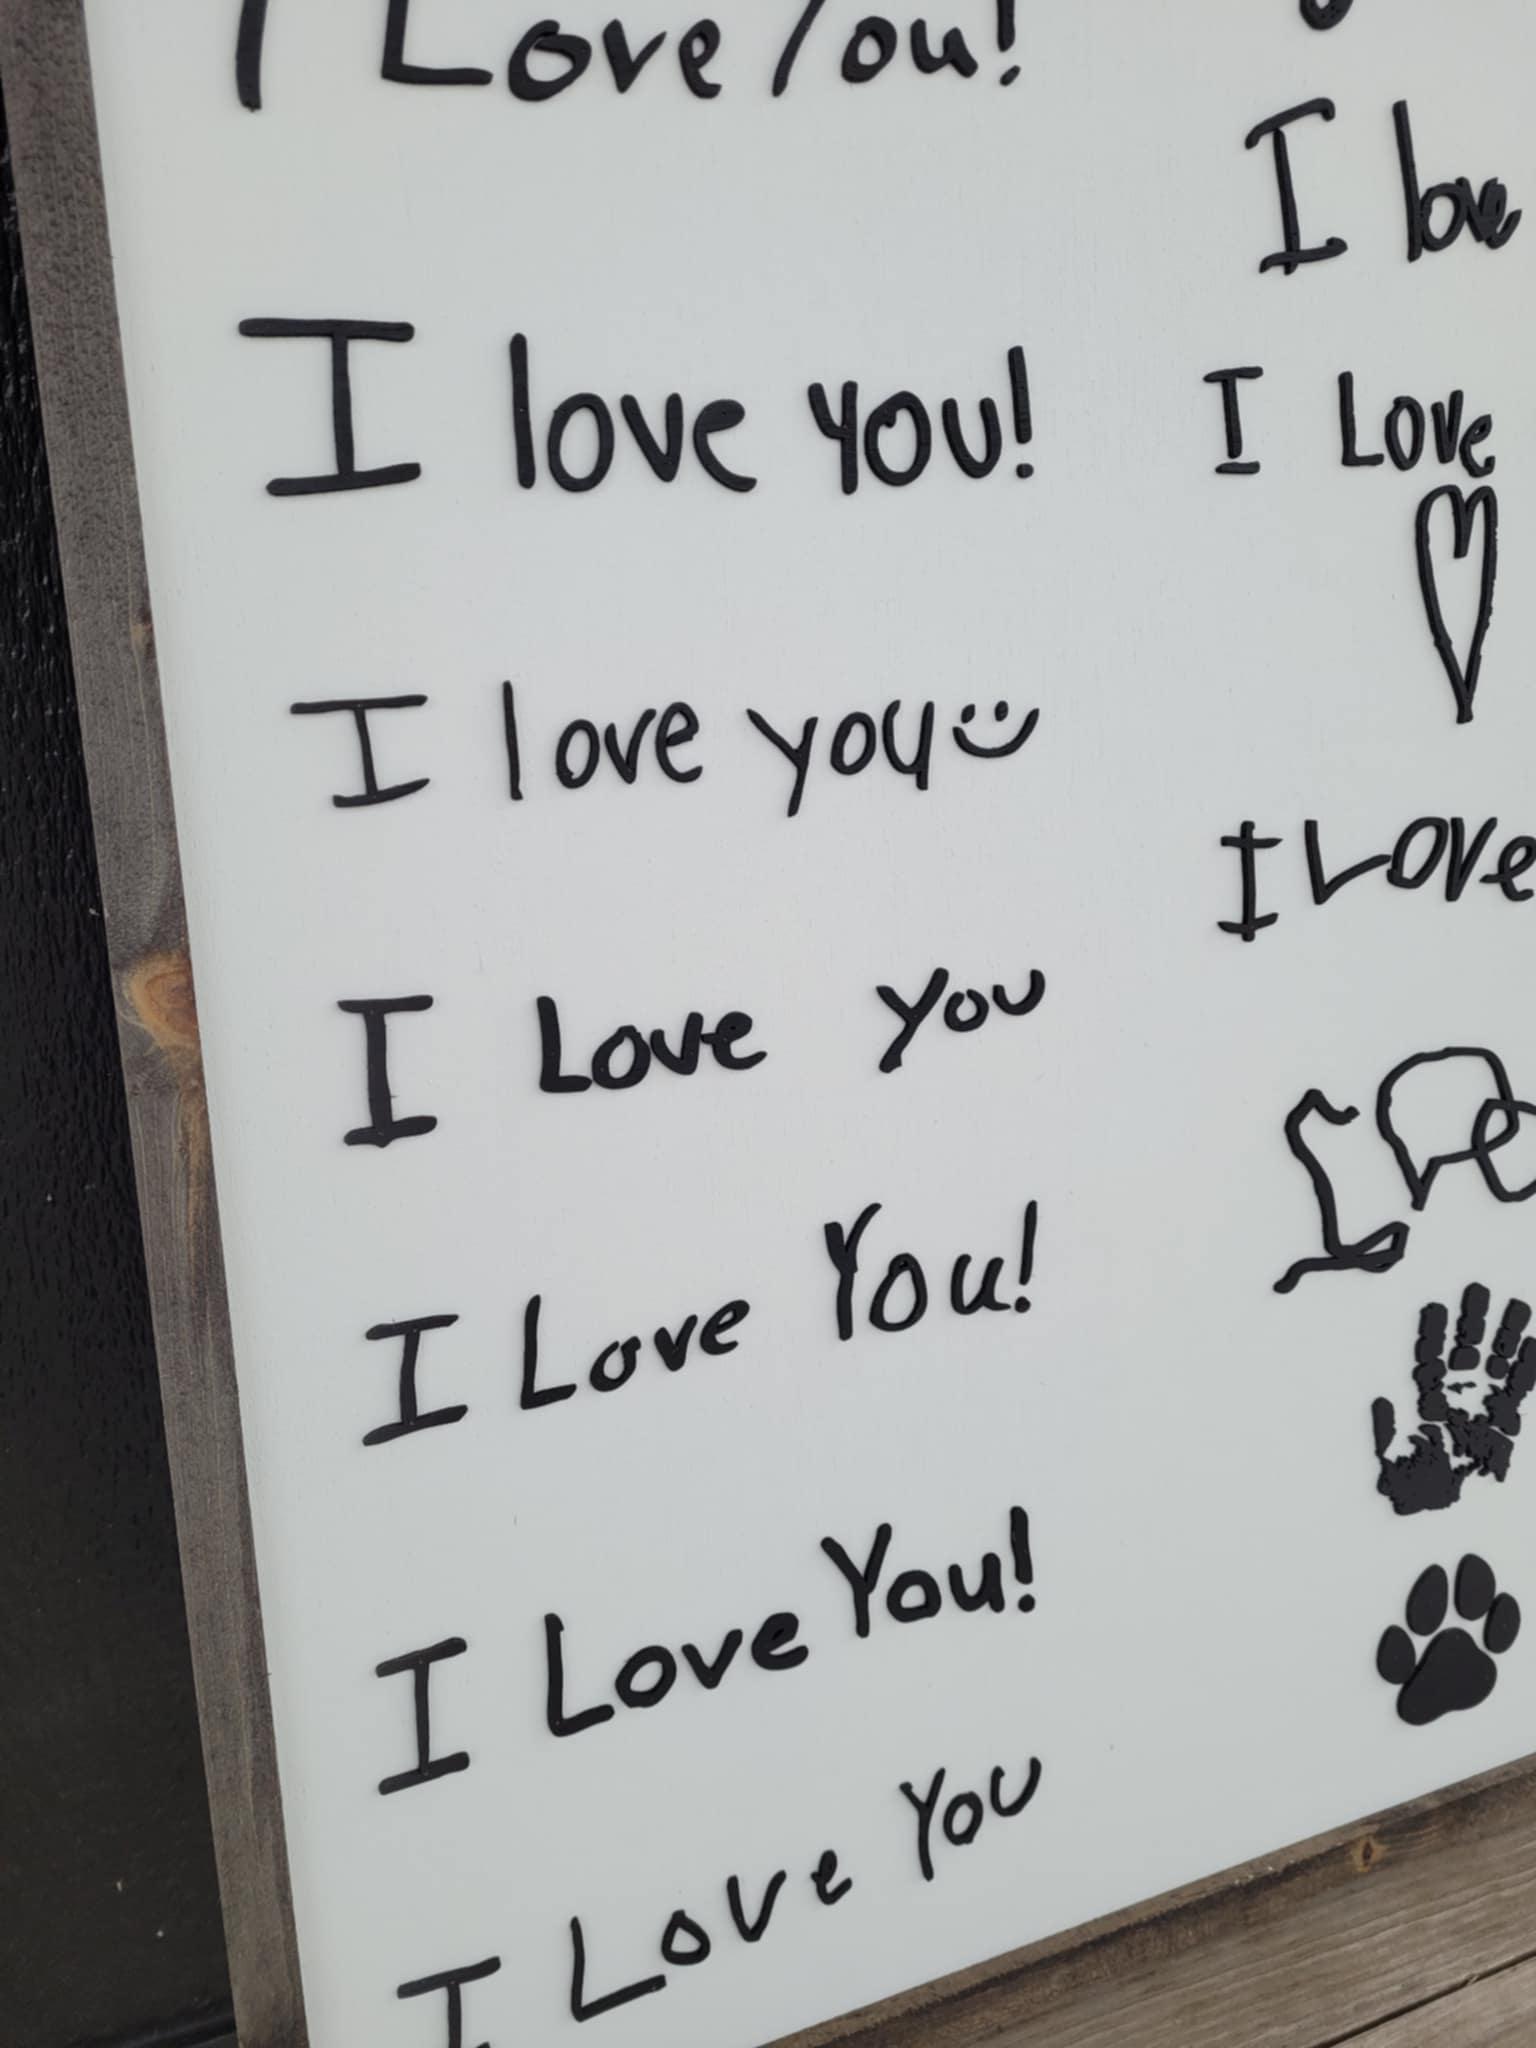 I Love You!
I love you!
I love you
I Love You
I Love You!
I Love You!
I Love You
I love
I Love
I Love